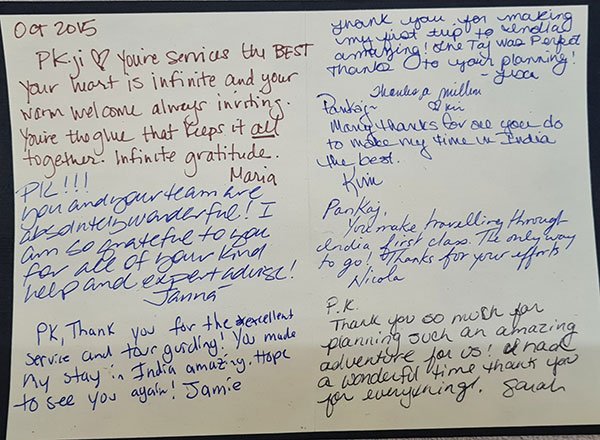 Oct 2015
PK.ji ♡ You're services the BEST
Your heart is infinite and your
warm welcome always inviting.
You're the glue that keeps it all
together. Infinite gratitude.
Maria
PK!!!
you and your team are
absolutely wonderful! I
am so grateful to you
for all of your kind
help and expert advise!
Janna
PK, Thank you for the excellent
service and tour guiding! You made
my stay in India amazing. Hope
to see you again! Jamie
Thank you for making
my first trip to India
amazing! The Taj was Perfect
Thanks to your planning!
Thanks a million
Pankaj,
Many thanks for all you do
to make my time in India
the best.
Kim
Pankaj,
You make travelling through
India first class. The only way
to go! Thanks for your efforts
Nicola
P.K.
Thank you so much for
planning such an amazing
adventure for us! I had
a wonderful time thank you
for everything!. Sarah